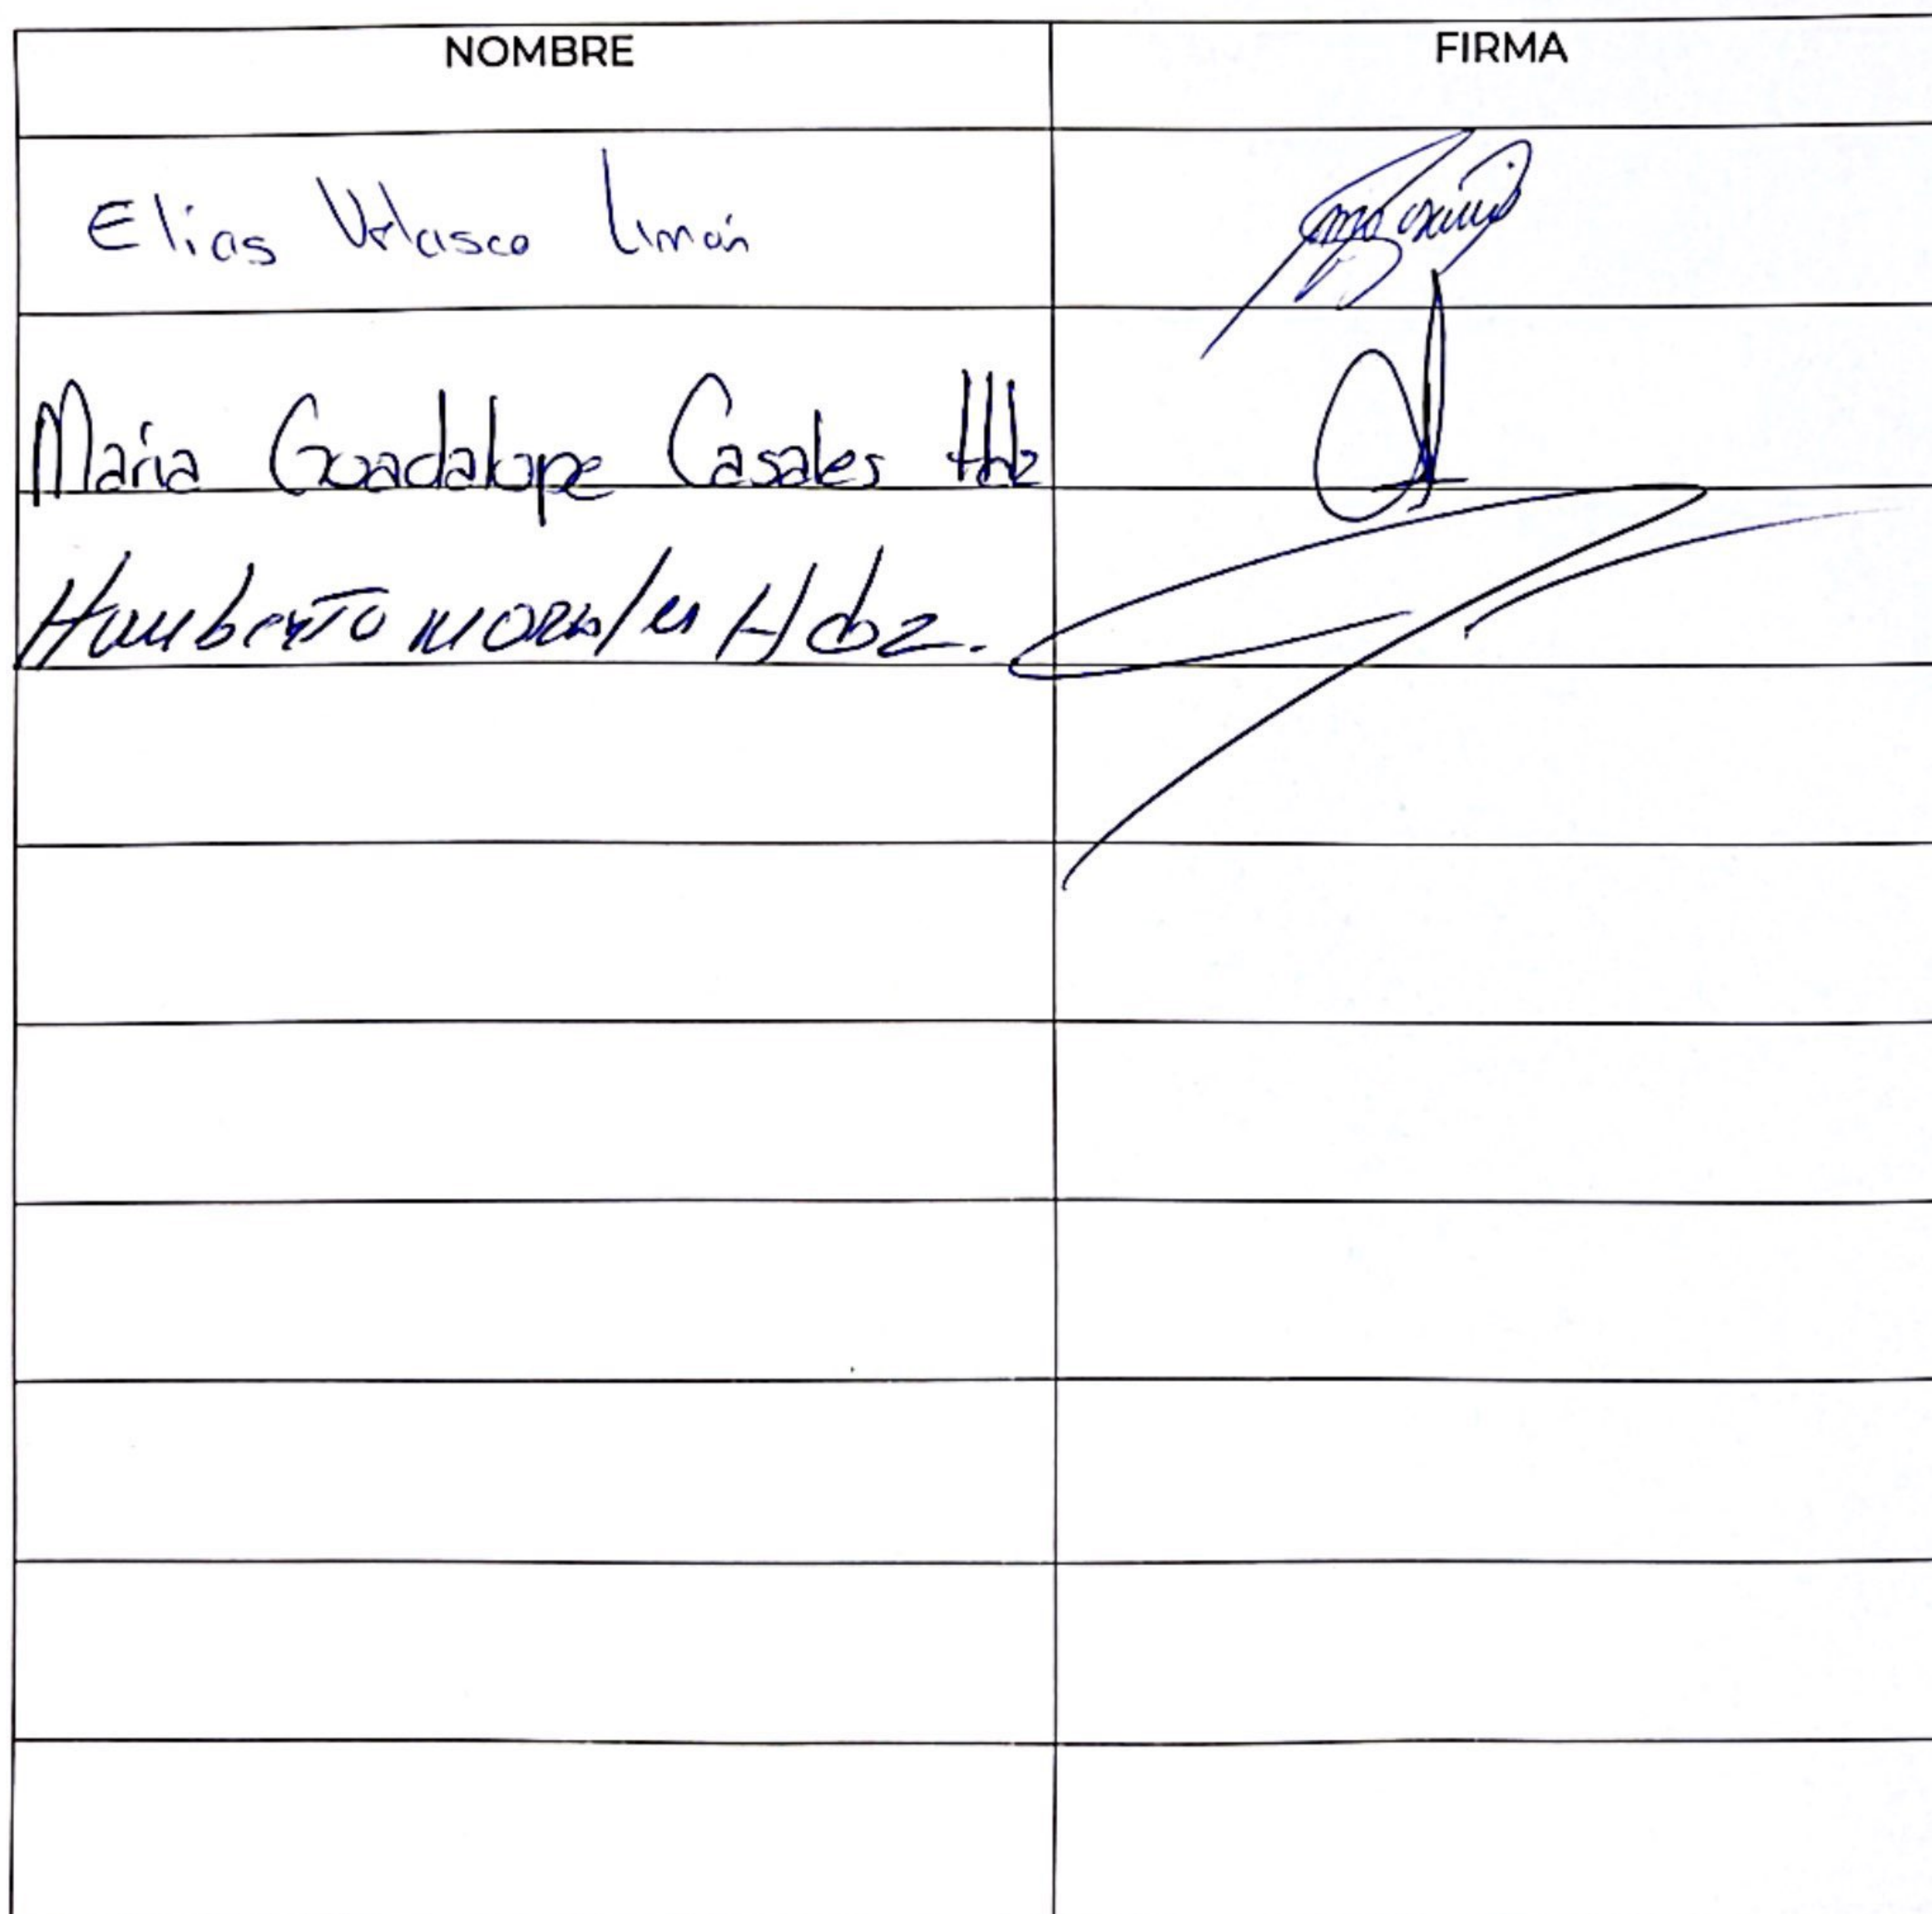 NOMBRE FIRMA
Elias Velasco Limón
Maria Guadalupe Casales Hdz
Humberto Morales Hdz.